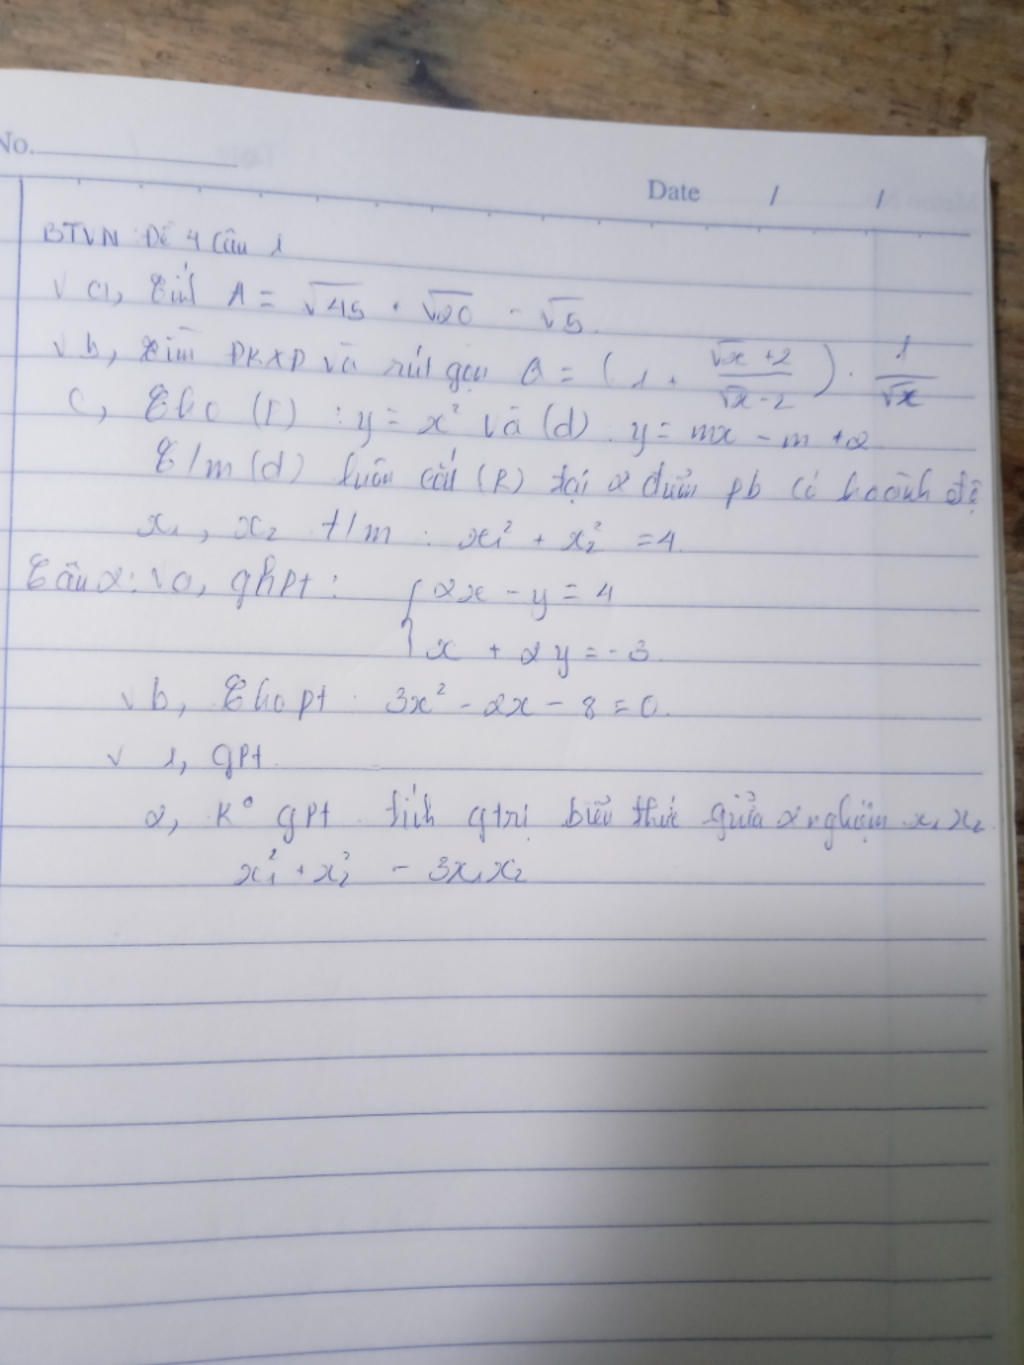 No.
Date / /
BTVN: Đề 4 Câu 1
√ a, Tính A = √45 + √20 - √5.
√ b, Tìm ĐKXĐ và rút gọn Q = (1 + (√x + 2)/(√x - 2)) . 1/√x
c, Cho (P) : y = x² và (d) : y = mx - m + 2
C/m (d) luôn cắt (P) tại 2 điểm pb có hoành độ
x₁, x₂ t/m : x₁² + x₂² = 4.
Câu 2: √ a, ghpt : { 2x - y = 4
x + 2y = -3.
√ b, Cho pt : 3x² - 2x - 8 = 0.
√ 1, gpt.
2, K° gpt tính gtrị biểu thức giữa 2 nghiệm x₁ x₂
x₁² + x₂² - 3x₁x₂